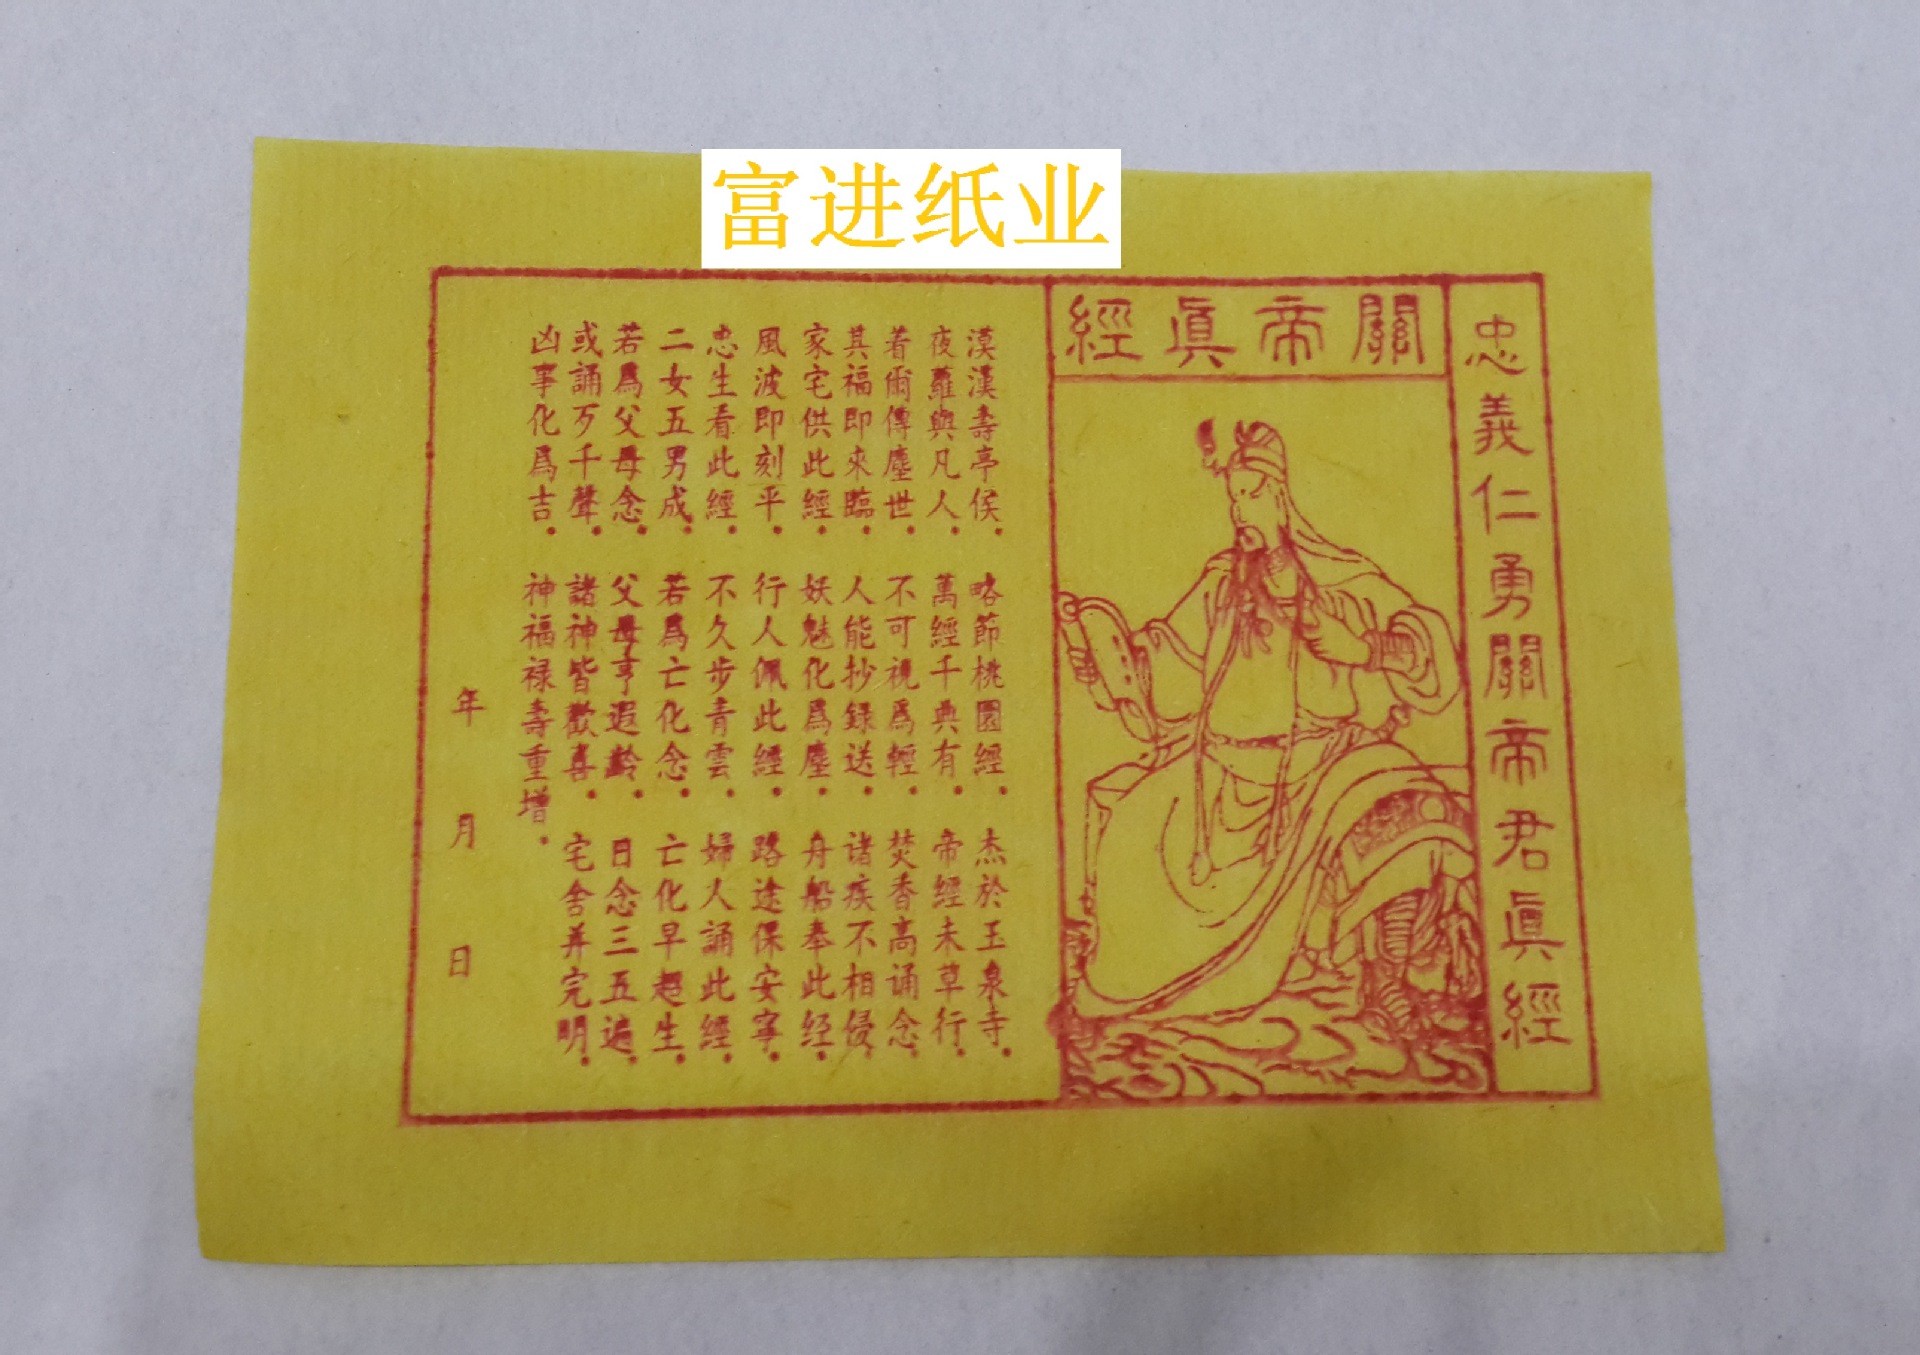 富进纸业
忠義仁勇關帝君眞經
關帝眞經
漢漢壽亭侯．略節桃園經．杰於玉泉寺．
夜羅與凡人．萬經千典有．帝經未草行．
着爾傳塵世．不可視爲輕．焚香高诵念．
其福即來臨．人能抄録送．诸疾不相侵．
家宅供此經．妖魅化爲塵．舟船奉此经．
風波即刻平．行人佩此經．路途保安寧．
忠生看此經．不久步青雲．婦人誦此經．
二女五男成．若爲亡化念．亡化早超生．
若爲父母念．父母亨遐齡．日念三五遍．
或誦歹千聲．諸神皆歡喜．宅舍并完明．
凶事化爲吉．神福禄壽重增．
年 月 日